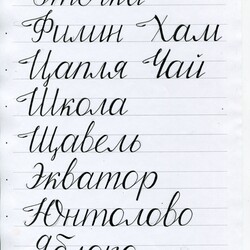 Филин Хам
Цапля Чай
Школа
Щавель
Экватор
Юнтолово
Яблоко